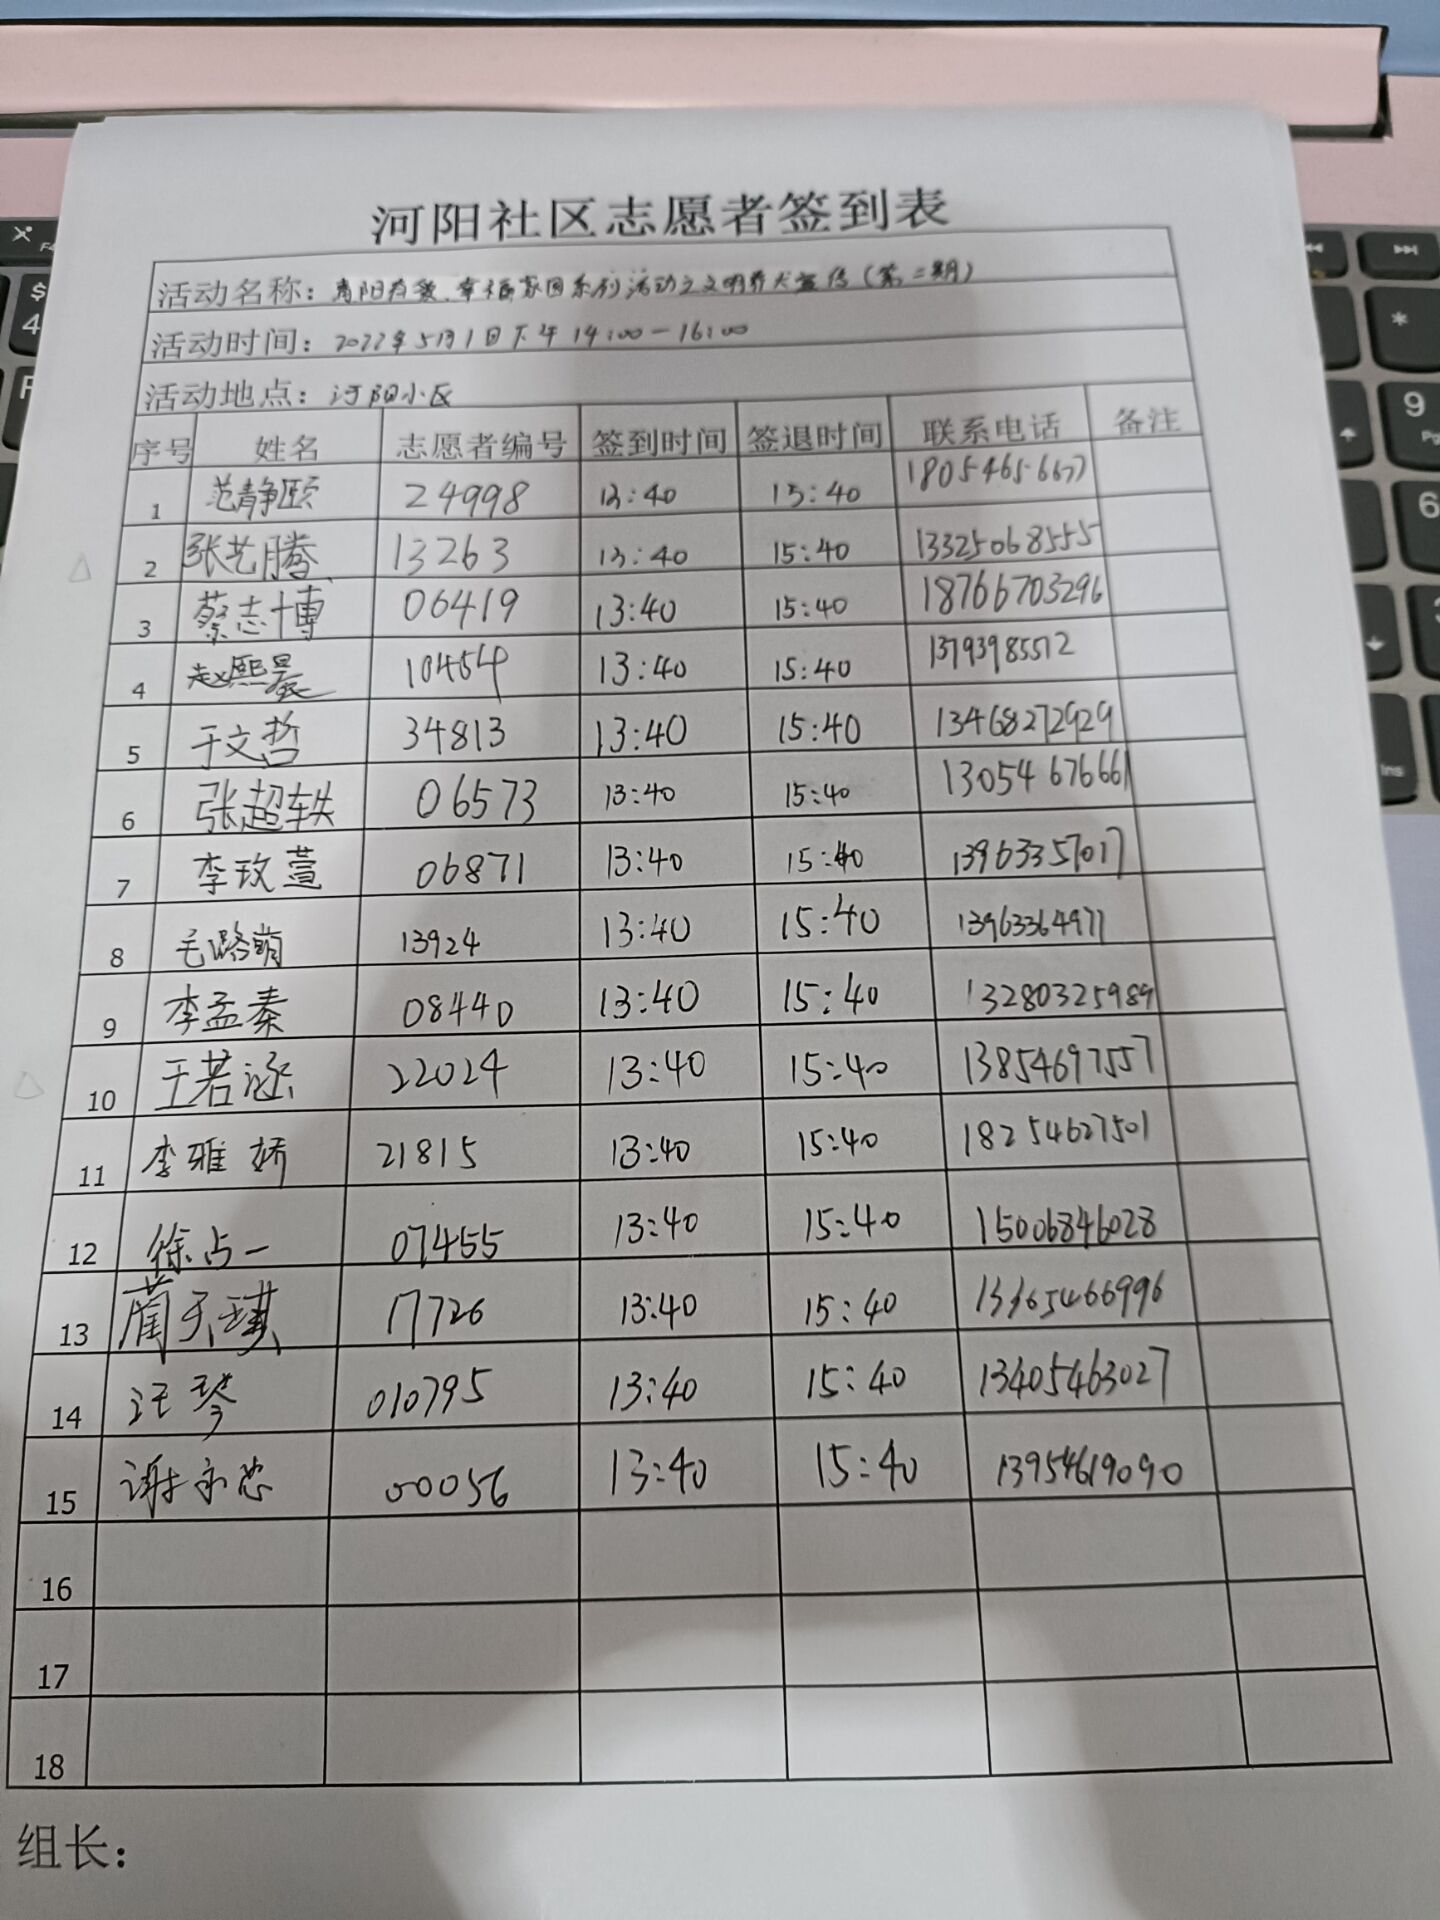 河阳社区志愿者签到表
活动名称：河阳有爱、幸福家园系列活动之文明养犬宣传（第二期）
活动时间：2022年5月1日下午14:00-16:00
活动地点：河阳小区
序号 姓名 志愿者编号 签到时间 签退时间 联系电话 备注
1 范静颐 24998 13:40 15:40 18054656677
2 张艺腾 13263 13:40 15:40 13325068555
3 蔡志博 06419 13:40 15:40 18766703296
4 赵熙晨 10454 13:40 15:40 13793985572
5 于文哲 34813 13:40 15:40 13468272929
6 张超轶 06573 13:40 15:40 13054676661
7 李玫萱 06871 13:40 15:40 13963357017
8 毛璐萌 13924 13:40 15:40 13963364971
9 李孟秦 08440 13:40 15:40 13280325989
10 王若涵 22024 13:40 15:40 13854697557
11 李雅娇 21815 13:40 15:40 18254627501
12 徐占一 07455 13:40 15:40 15006846028
13 蔺天琪 17726 13:40 15:40 13365466996
14 汪琴 010795 13:40 15:40 13405463027
15 谢永芯 00056 13:40 15:40 13954619090
16
17
18
组长：